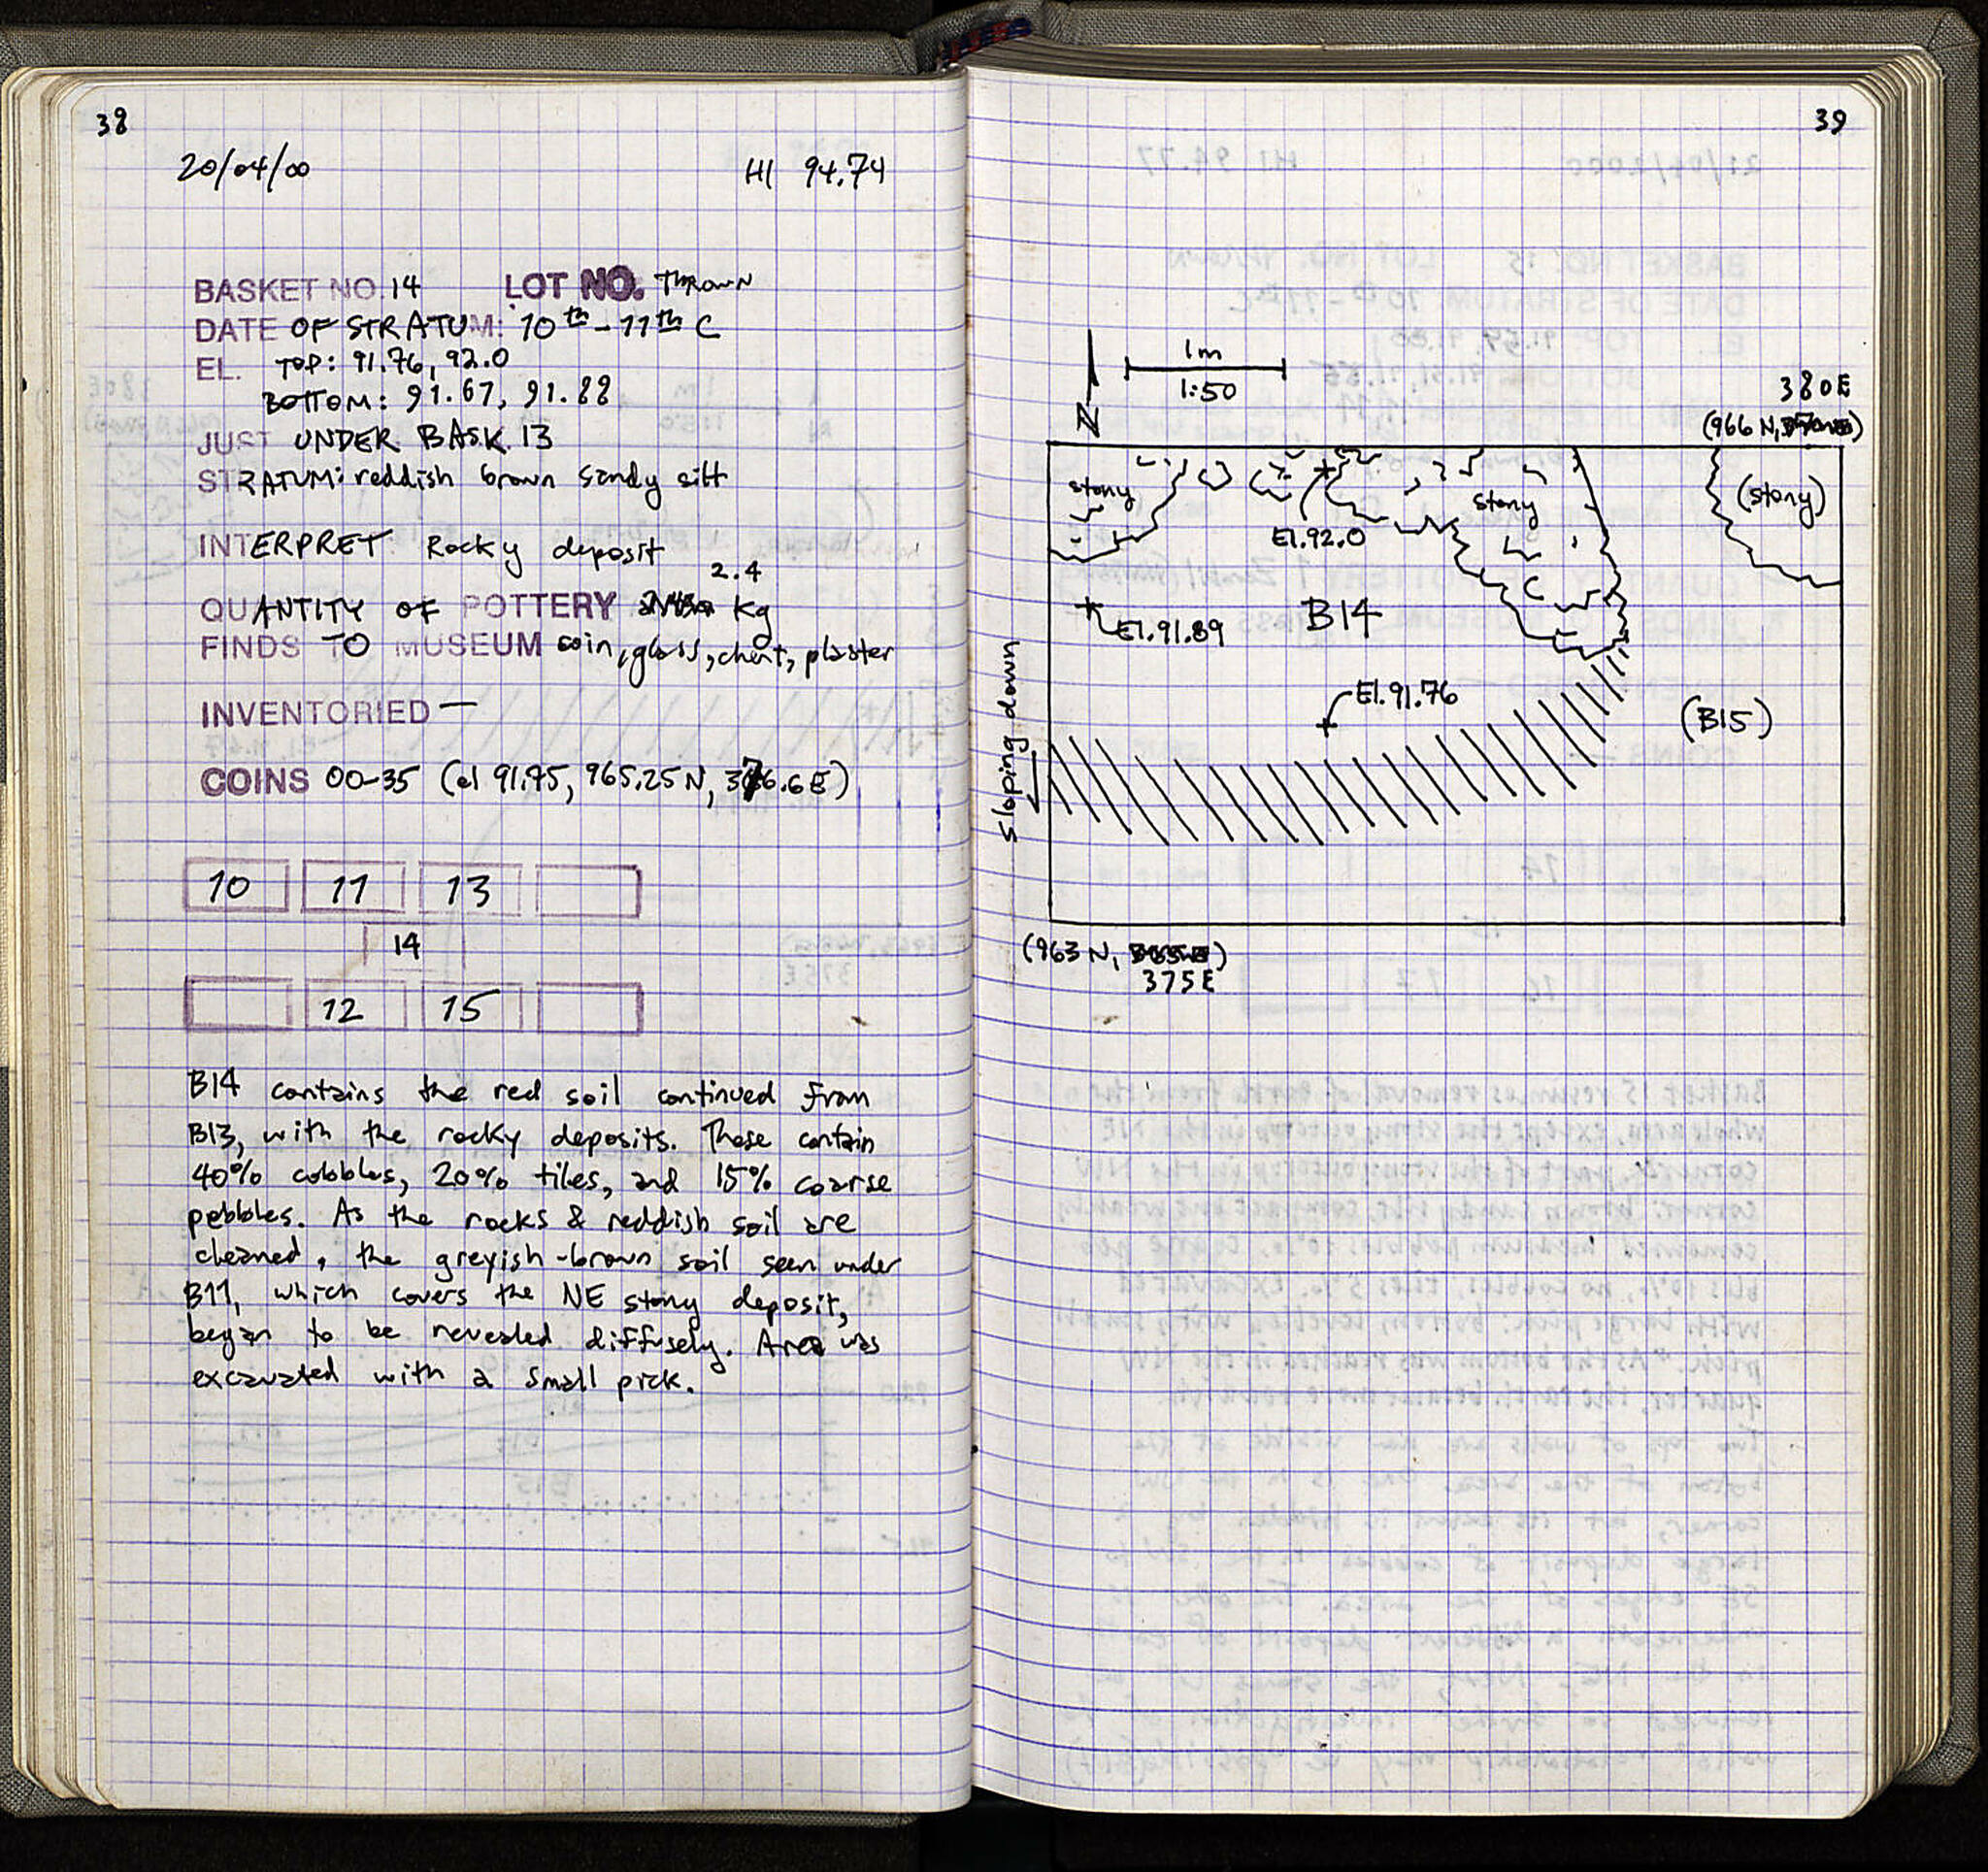 38
20/04/00 HI 94.74
BASKET NO. 14 LOT NO. THROWN
DATE OF STRATUM: 10th-11th C
EL. TOP: 91.76, 92.0
BOTTOM: 91.67, 91.88
JUST UNDER BASK. 13
STRATUM: reddish brown sandy silt
INTERPRET Rocky deposit
2.4
QUANTITY OF POTTERY Kg
FINDS TO MUSEUM coin, glass, chert, plaster
INVENTORIED —
COINS 00-35 (el 91.75, 965.25N, 376.6E)
10 11 13
14
12 15
B14 contains the red soil continued from
B13, with the rocky deposits. These contain
40% cobbles, 20% tiles, and 15% coarse
pebbles. As the rocks & reddish soil are
cleaned, the greyish-brown soil seen under
B11, which covers the NE stony deposit,
began to be revealed diffusely. Area was
excavated with a small pick.
39
1m
1:50
N
380E
(966 N, )
stony
stony
(stony)
El.92.0
B14
El.91.89
El.91.76
(B15)
sloping down
(963 N, )
375E